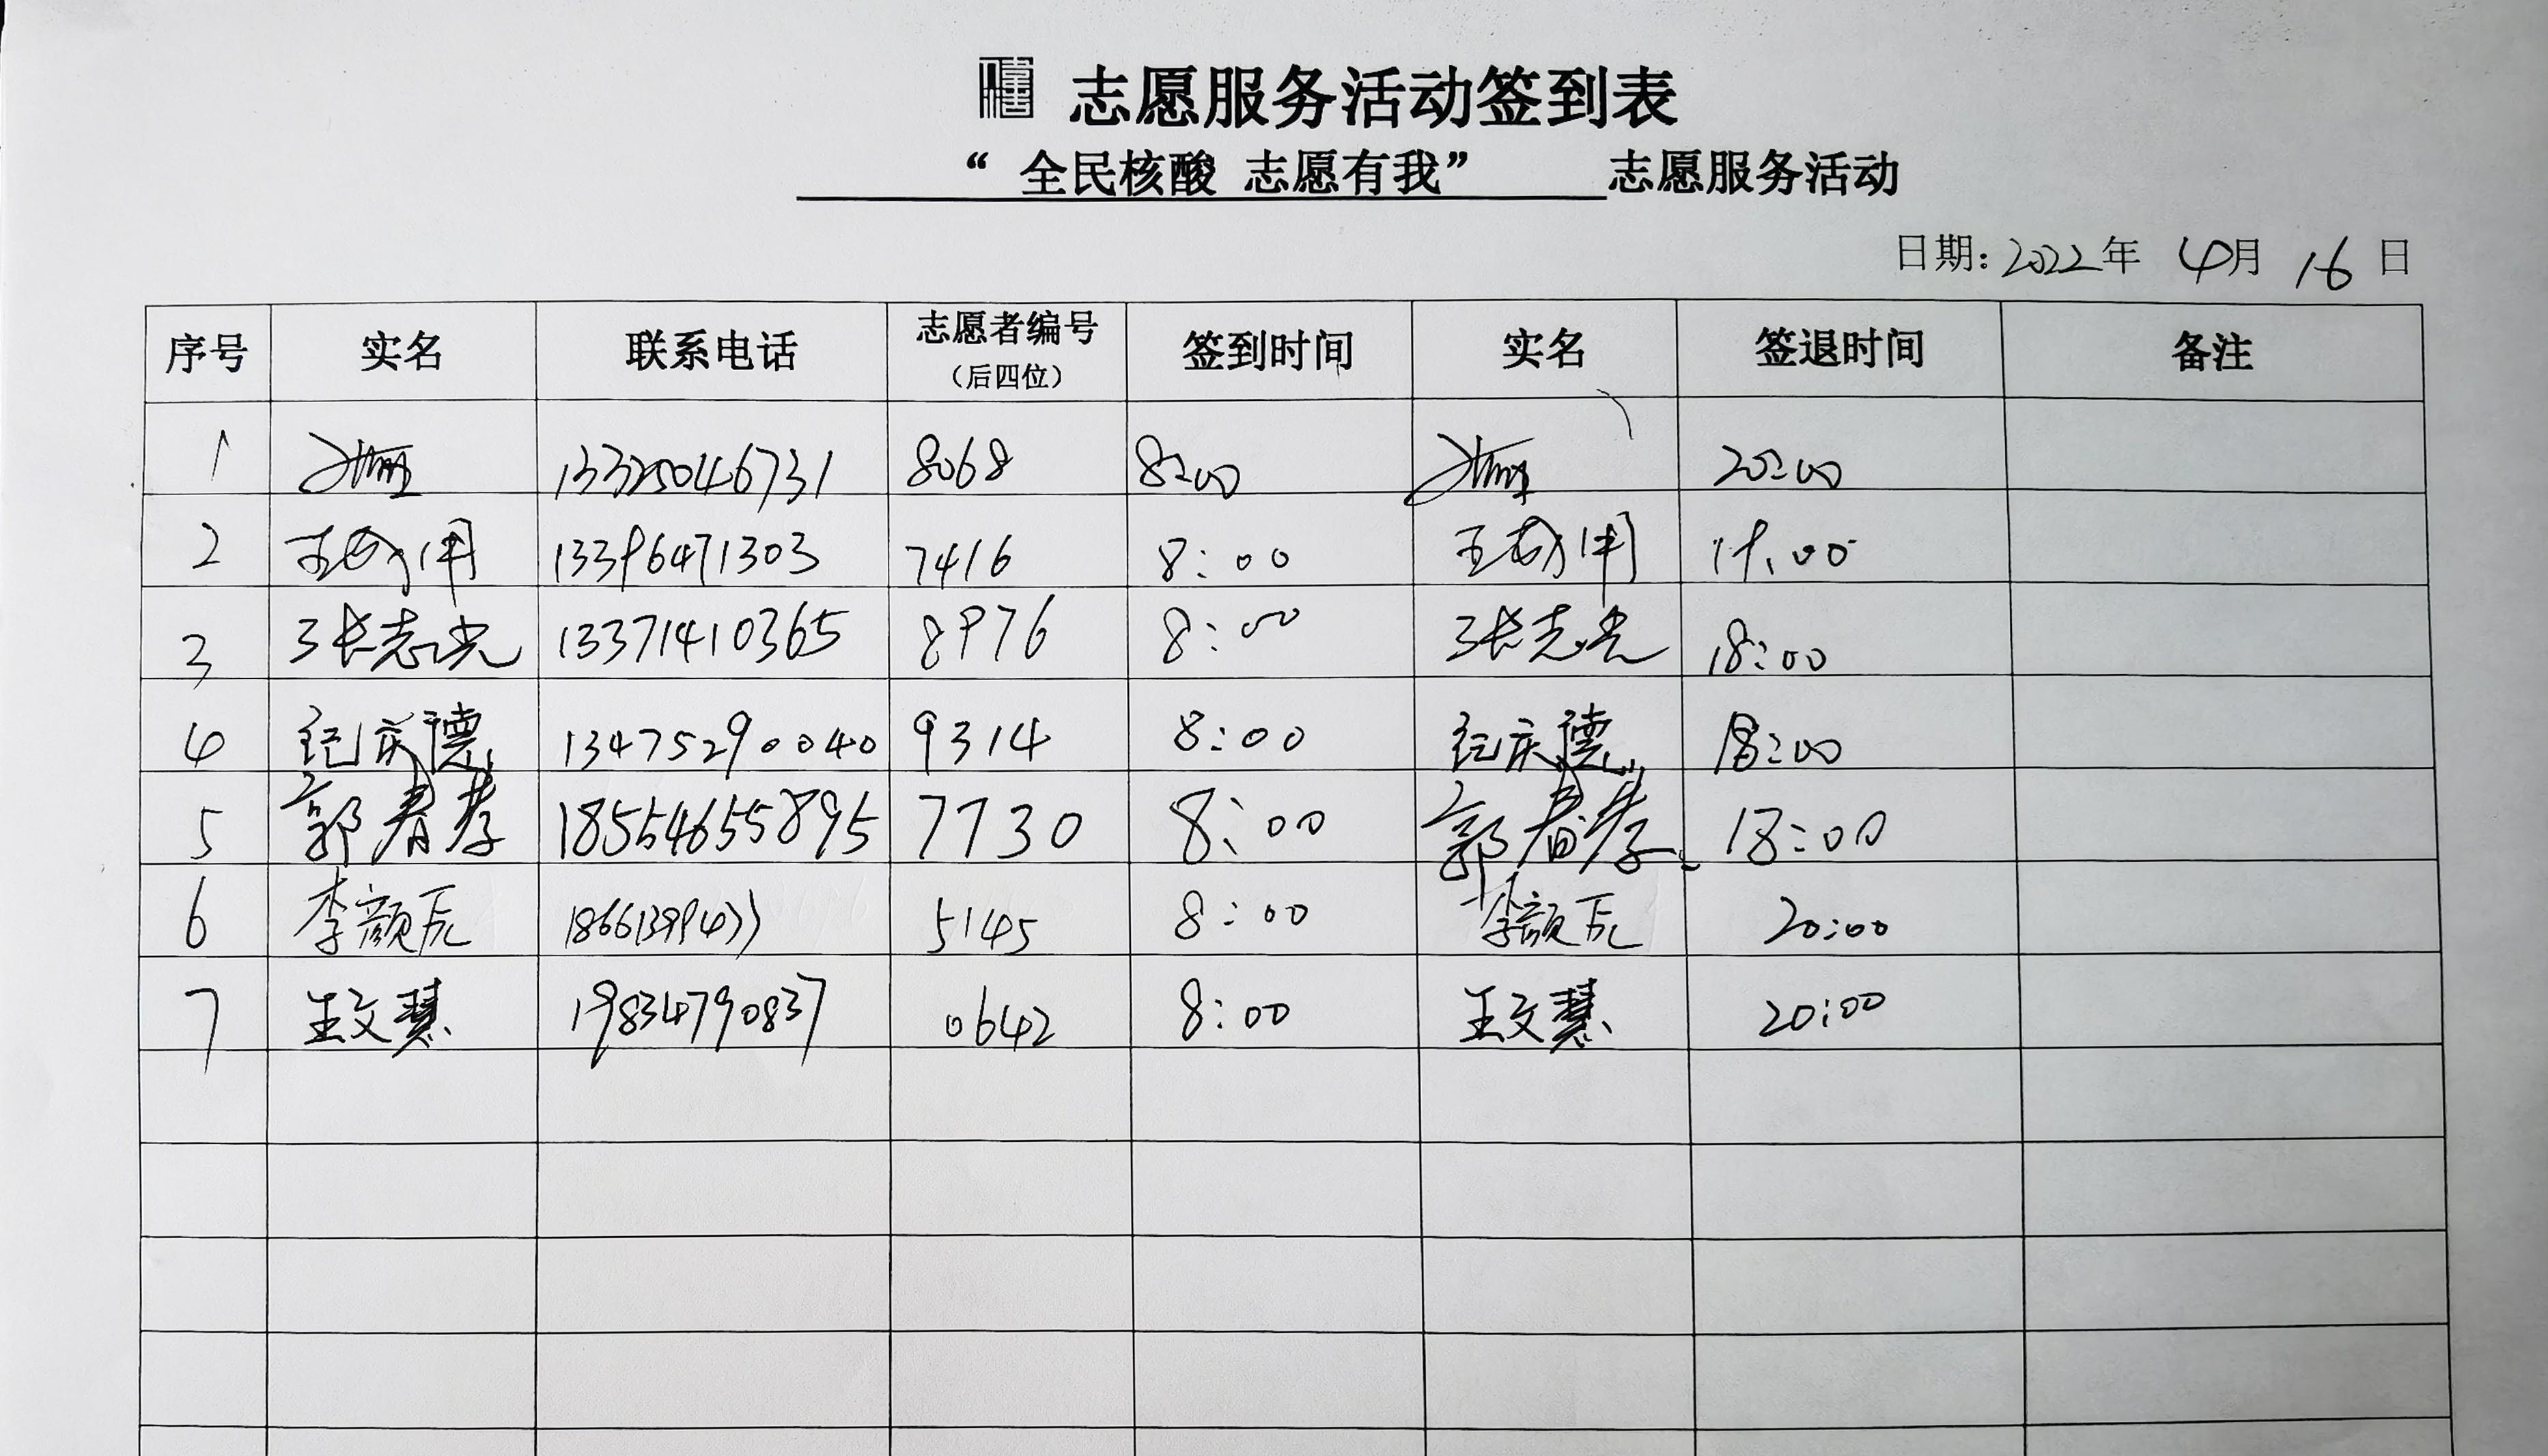 志愿服务活动签到表
“ 全民核酸 志愿有我” 志愿服务活动
日期: 2022年 4月 16日
序号 实名 联系电话 志愿者编号（后四位） 签到时间 实名 签退时间 备注
1 13325046731 8068 8:00 20:00
2 13396471303 7416 8:00 19:00
3 张志光 13371410365 8976 8:00 张志光 18:00
4 纪庆德 13475290040 9314 8:00 纪庆德 18:00
5 郭春孝 18554655895 7730 8:00 郭春孝 18:00
6 李颜 5145 8:00 李颜 20:00
7 王文慧 19834790837 0642 8:00 王文慧 20:00